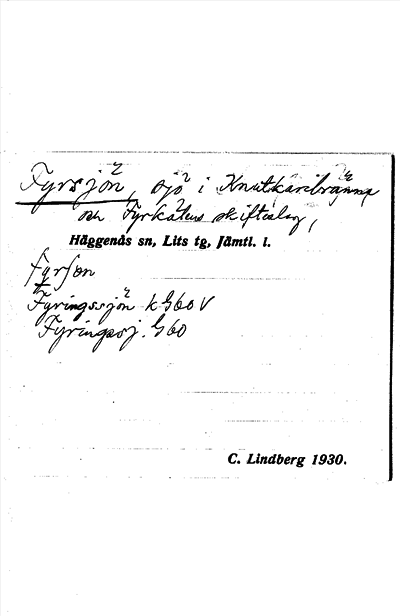 Fyrsjön, sjö i Knutkärrbränna
och Fyrkåtens skifteslag,
Häggenås sn, Lits tg, Jämtl. l.
fyrʃøn
Fyringssjön k G60 V
Fyringssj. G60
C. Lindberg 1930.